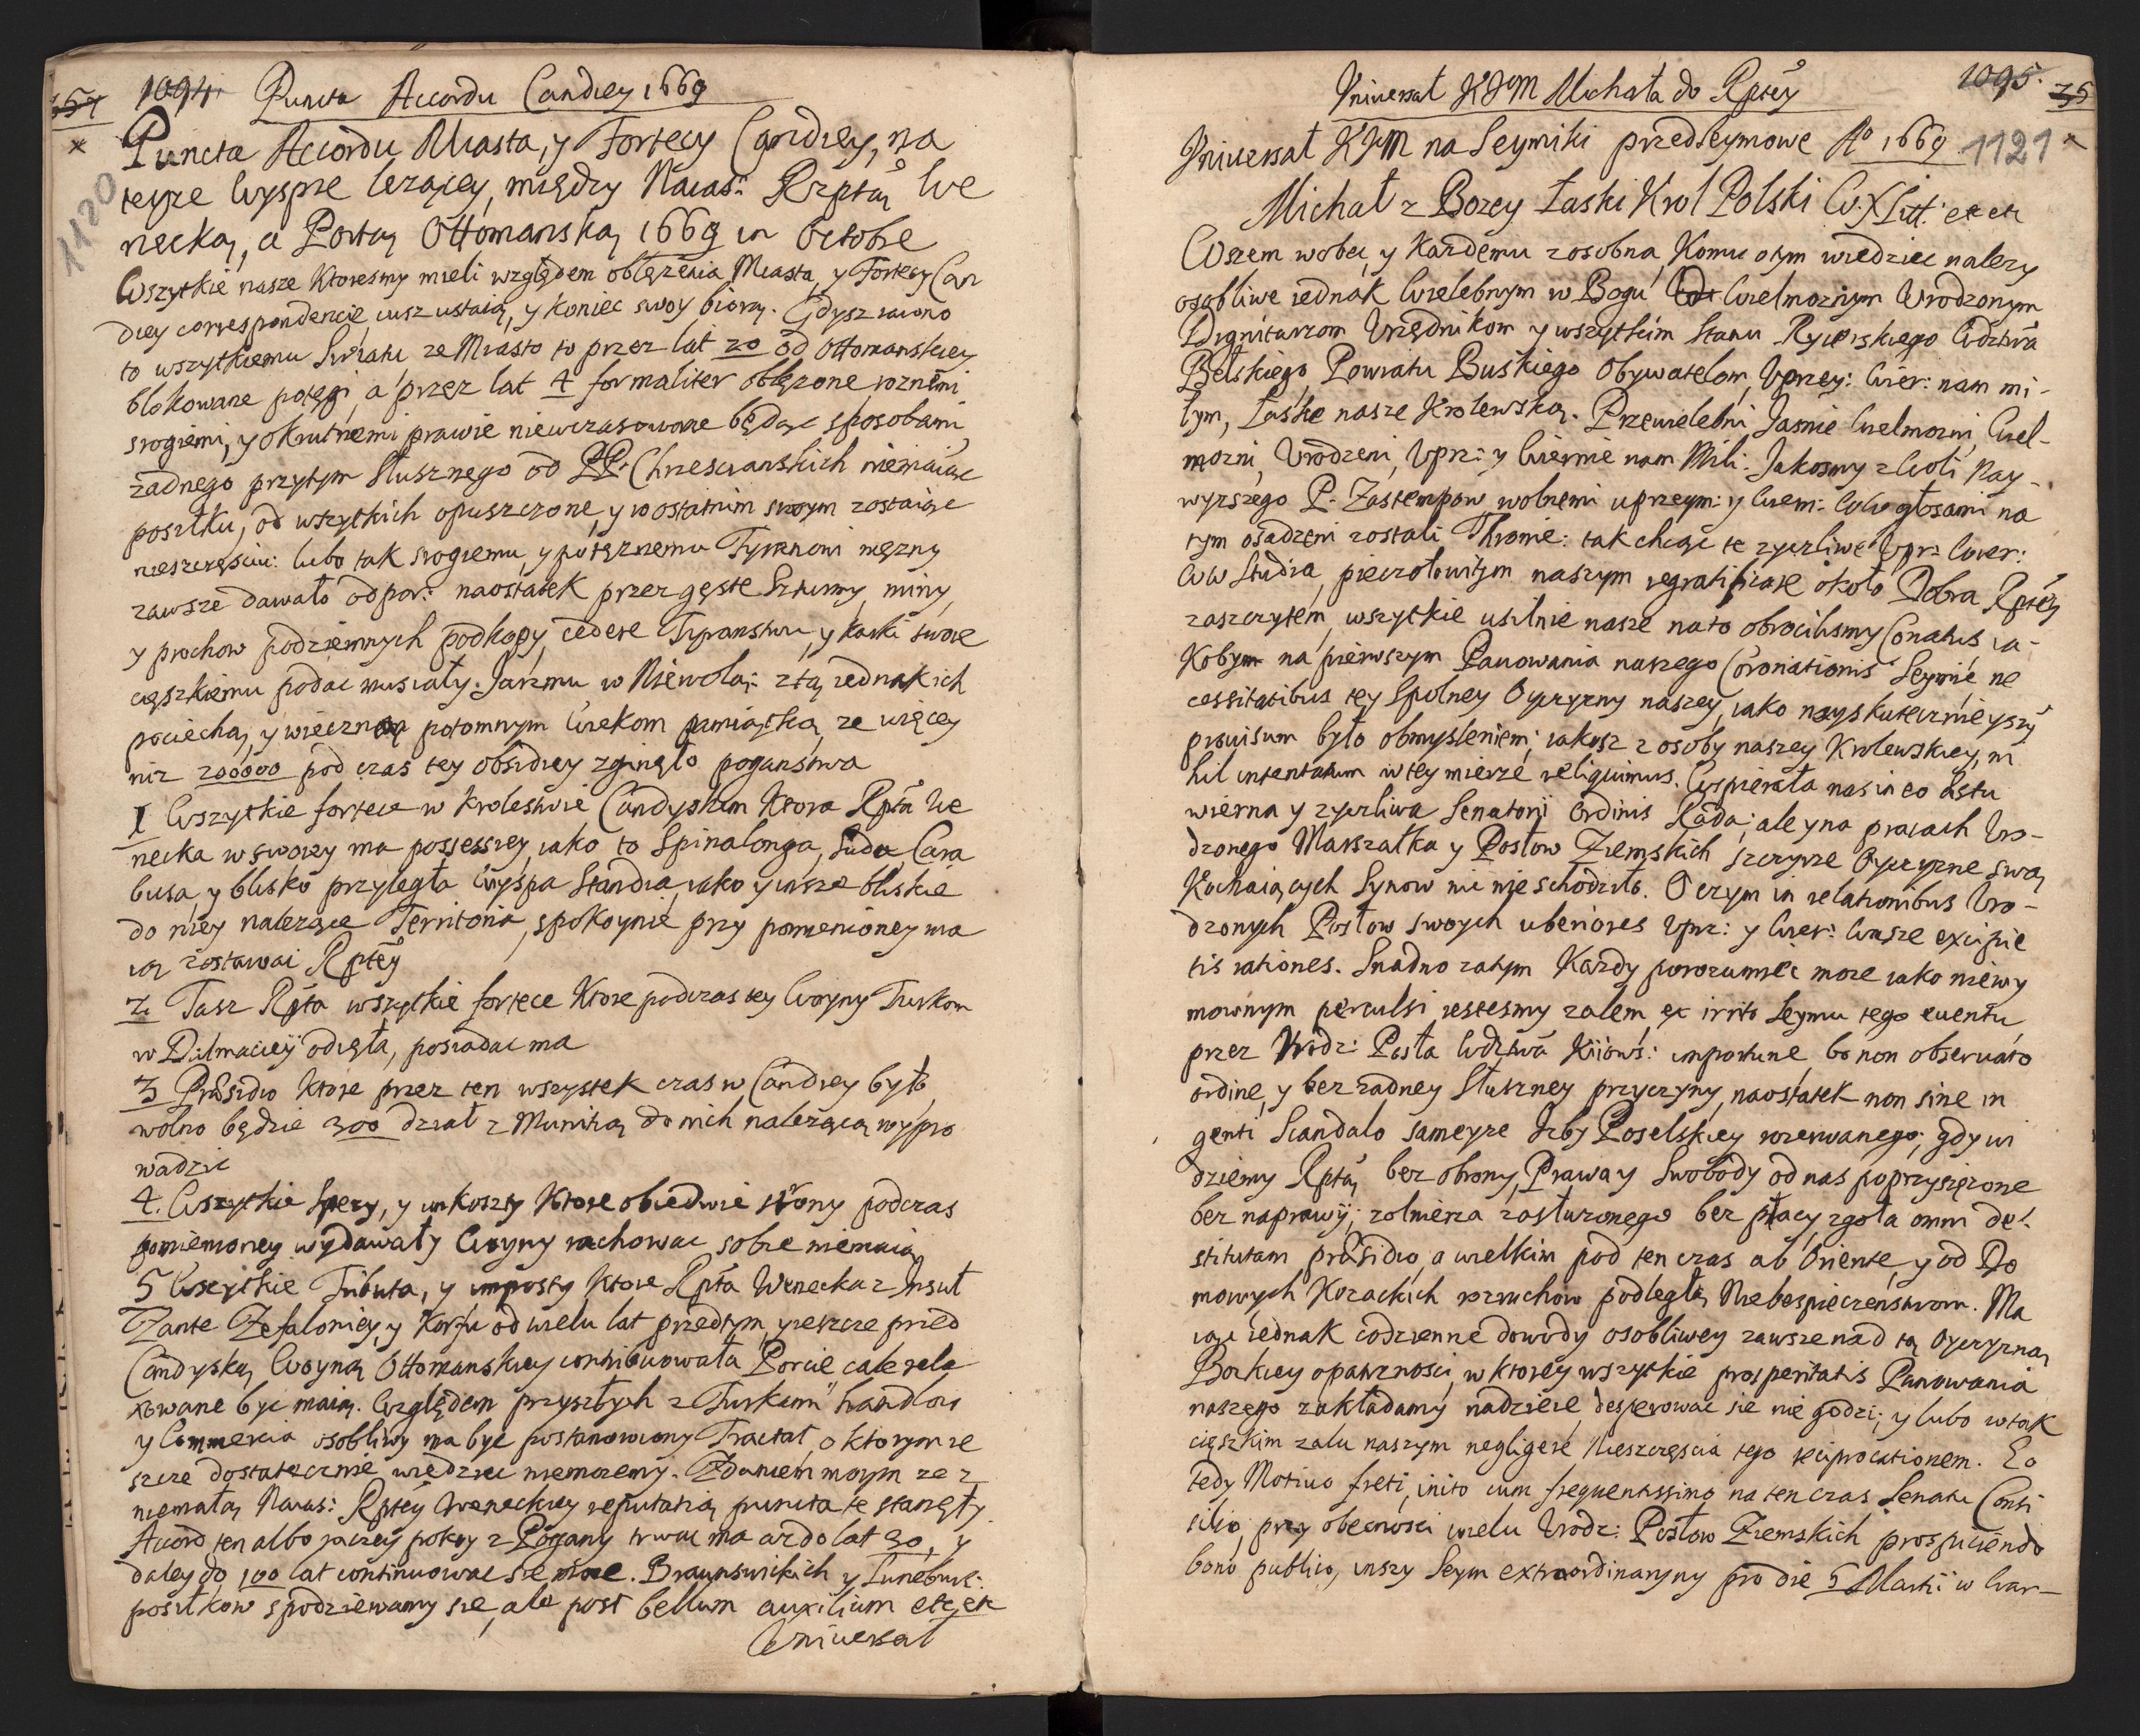 1094. Puncta Accordu Candiey 1669
Puncta Accordu Miasta, y Fortecy Candiey, na
teyze Wyspie lezącey, między Naias: Rzptą We
necką, a Portą Ottomanską 1669 in Octobre
Wszytkie nasze Ktoresmy mieli względem oblęzenia Miasta, y Fortecy Can
diey correspondencie iusz ustaią, y koniec swoy biorą. Gdysz iawno
to wszytkiemu Swiatu ze Miasto to przez lat 20 od Ottomanskiey
blokowane potęgi, a przez lat 4 formaliter oblęzone roznemi
srogiemi, y okrutnemi prawie niewczasowane będąc sposobami
zadnego przytym słusznego od PP. Chrescianskich niemaiąc
posiłku, od wszytkich opuszczone, y w ostatnim swoym zostaiące
nieszczęsciu: lubo tak srogiemu, y potęznemu Tyranowi męzny
zawsze dawało odpor: naostatek przez gęste Szturmy, miny,
y prochow podziemnych podkopy, cedere Tyranstwu, y karki swoie
cięszkiemu podac musiały Jarzmu w Niewolą: z tą iednak ich
pociechą, y wieczną potomnym Wiekom pamiątką, ze więcey
niz 200000 pod czas tey obsidiey zginęło poganstwa
1 Wszytkie fortece w Krolestwie Candyskim Ktora Rpta We
necka w swoiey ma possessiey, iako to Spinalonga, Suda, Cara
busa, y blisko przyległa Wyspa Standia, iako y insze bliskie
do niey nalezące Territoria, spokoynie przy pomienioney ma
ią zostawac Rptey
2. Tasz Rpta wszytkie fortece Ktore podczas tey Woyny Turkom
w Dalmaciey odięła, posiadac ma
3 Præsidio Ktore przez ten wszystek czas w Candiey było,
wolno będzie 300 dział z Municią do nich nalezącą wypro
wadzic
4. Wszytkie Spezy, y unkoszty Ktore obiedwie strony podczas
pomienioney wydawały Woyny rachowac sobie niemaią
5 Wszytkie Tributa, y imposty Ktore Rpta Wenecka z Insuł
Zante Zefaloniey, y Korfu od wielu lat przedtym, y ieszcze przed
Candyską Woyną Ottomanskiey contribuowała Porcie cale rela
xowane byc maią. Względem przyszłych z Turkami handlow
y Commercia osobliwy ma byc postanowiony Tractat, o ktorym ie
szcze dostatecznie wiedziec niemozemy. Zdaniem moym ze z
niemałą Naias: Rptey Weneckiey reputatią puncta te stanęły.
Accord ten albo raczey pokoy z Pogany trwac ma az do lat 30, y
daley do 100 lat continuowac sie moze. Braunswikich y Luneburs:
posiłkow spodziewamy sie, ale post bellum auxilium etc etc
Uniwersał
Uniwersał KJM Michała do Rptey 1095.
Uniwersał KJM na Seymiki przedseymowe Ao 1669 1121
Michał z Bozey Łaski Krol Polski W.X Litt: etc etc
Wszem wobec, y Kazdemu zosobna, Komu otym wiedziec nalezy
osobliwie iednak Wielebnym w Bogu Wielmoznym Urodzonym
Dignitarzom Urzędnikom y wszytkim Stanu Rycerskiego Wdztwa
Bełskiego, Powiatu Buskiego Obywatelom, Uprzey: Wier: nam mi-
łym, Łaskę nasze Krolewską. Przewielebni Jasnie Wielmozni, Wiel-
mozni, Urodzeni, Uprz: y Wiernie nam Mili. Jakosmy z Woli Nay-
wyzszego P. Zastempow wolnemi uprzeym: y Wiern: WWw głosami na
tym osadzeni zostali Thronie: tak chcąc te zyczliwe Uprz: Wier:
WW Studia, pieczołowitym naszym regratificare około Dobra Rptey
zaszczytem, wszytkie usilnie nasze na to obrociliśmy Conatus, ia-
Koby na pierwszym Panowania naszego Coronationis Seymie, ne
cessitatibus tey Spolney Oyczyzny naszey, iako nayskutecznieyszy
prouisum było obmysleniem; iakosz z osoby naszey Krolewskiey, ni
hil intentatum w tey mierze reliquimus. Wspierała nas in eo æstu
wierna y zyczliwa Senatorij Ordinis Rada; ale y na pracach Uro-
dzonego Marszałka y Posłow Ziemskich szczyrze Oyczyzne swą
Kochaiących Synow nic nie schodziło. O czym in relationibus Uro-
dzonych Posłow swoych uberiores Uprz: y Wier: Wasze excipie
tis rationes. Snadno zatym Kazdy porozumiec moze iako niewy
mownym perculsi iestesmy zalem, ex irrito Seymu tego euentu
przez Urodz: Posła Wdztwa Kijows: importune, bo non obseruato
ordine, y bez zadney słuszney przyczyny, naostatek non sine in
genti Scandalo sameyze Izby Poselskiey rozerwanego; gdy wi
dziemy Rptą bez obrony, Prawa y Swobody od nas poprzysięzone
bez naprawy; zołnierza zasłuzonego bez płacy, zgoła omni de-
stitutam præsidio, a wielkim pod ten czas ab Oriente, y od Do
mowych Kozackich rozruchow podległą Niebespieczenstwom. Ma
iąc iednak codzienne dowody osobliwey zawsze nad tą Oyczyzną
Boskiey opatrznosci, w ktorey wszytkie prosperitatis Panowania
naszego zakładamy nadzieie, desperowac sie nie godzi; y lubo w tak
cięszkim zalu naszym negligere Nieszczęscia tego reciprocationem. Eo
tedy Motiuo freti, inito cum frequentissimo na ten czas Senatu Consi
silio, przy obecnosci wielu Urodz: Posłow Ziemskich prospiciendo
bono publico, inszy Seym extraordinaryiny pro die 5 Martij w War-